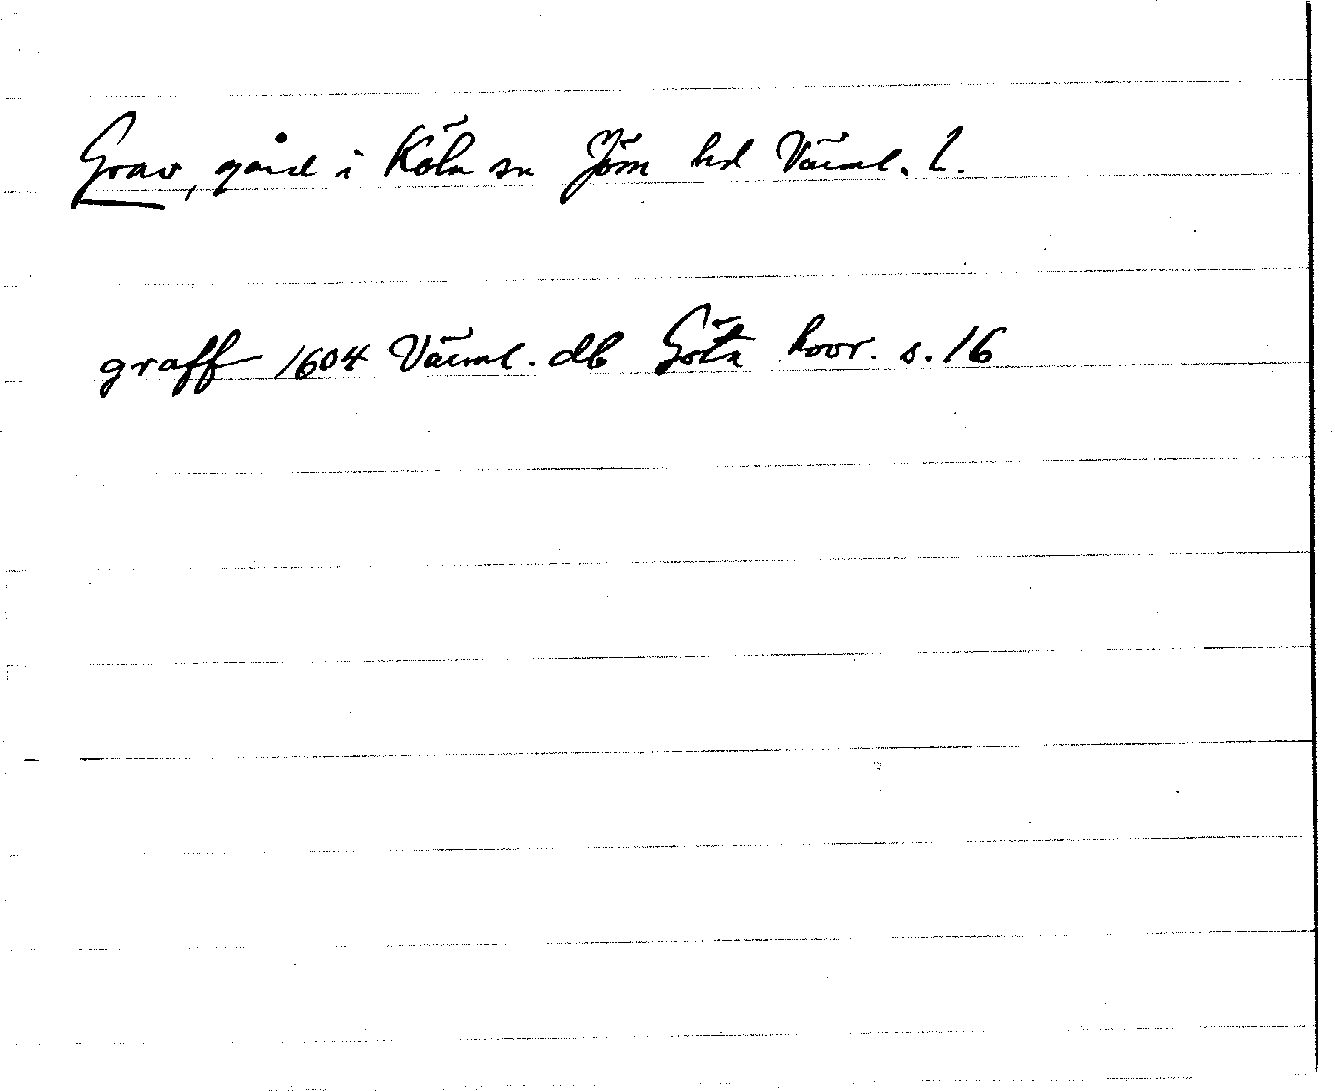 Grav, gård i Köla sn Jöss hd Värml. l.
graff 1604 Värml. db Göta hovr. s. 16